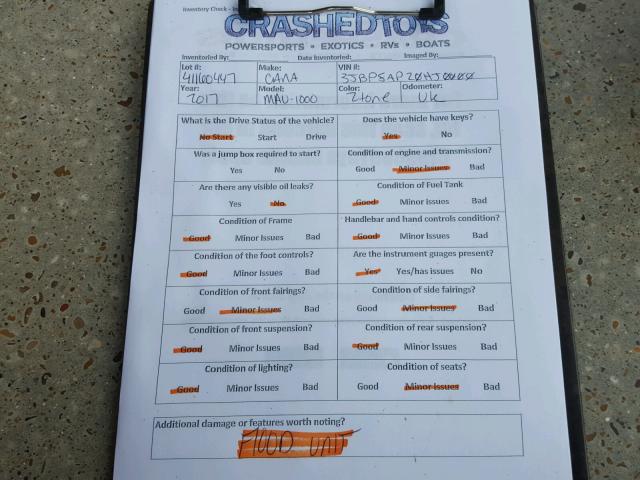 Inventory Check -
CRASHEDTOYS
POWERSPORTS • EXOTICS • RVs • BOATS
Inventoried By: Date Inventoried: Imaged By:
Lot #: Make: VIN #:
41160447 CANA 3JBPSAP20HJ0000
Year: Model: Color: Odometer:
2017 MAV-1000 2tone UK
What is the Drive Status of the vehicle? Does the vehicle have keys?
No Start Start Drive Yes No
Was a jump box required to start? Condition of engine and transmission?
Yes No Good Minor Issues Bad
Are there any visible oil leaks? Condition of Fuel Tank
Yes No Good Minor Issues Bad
Condition of Frame Handlebar and hand controls condition?
Good Minor Issues Bad Good Minor Issues Bad
Condition of the foot controls? Are the instrument guages present?
Good Minor Issues Bad Yes Yes/has issues No
Condition of front fairings? Condition of side fairings?
Good Minor Issues Bad Good Minor Issues Bad
Condition of front suspension? Condition of rear suspension?
Good Minor Issues Bad Good Minor Issues Bad
Condition of lighting? Condition of seats?
Good Minor Issues Bad Good Minor Issues Bad
Additional damage or features worth noting?
Flood unit